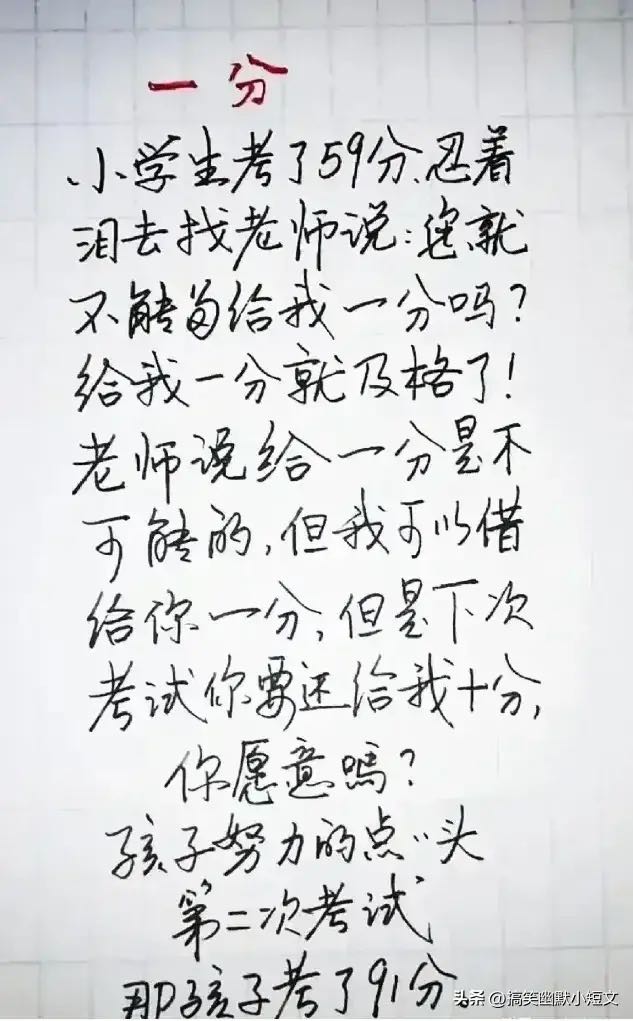 一分
小学生考了59分,忍着
泪去找老师说:您就
不能多给我一分吗?
给我一分就及格了!
老师说给一分是不
可能的,但我可以借
给你一分,但是下次
考试你要还给我十分,
你愿意嗎?
孩子努力的点〃头
第二次考试
那孩子考了91分。
头条 @搞笑幽默小短文